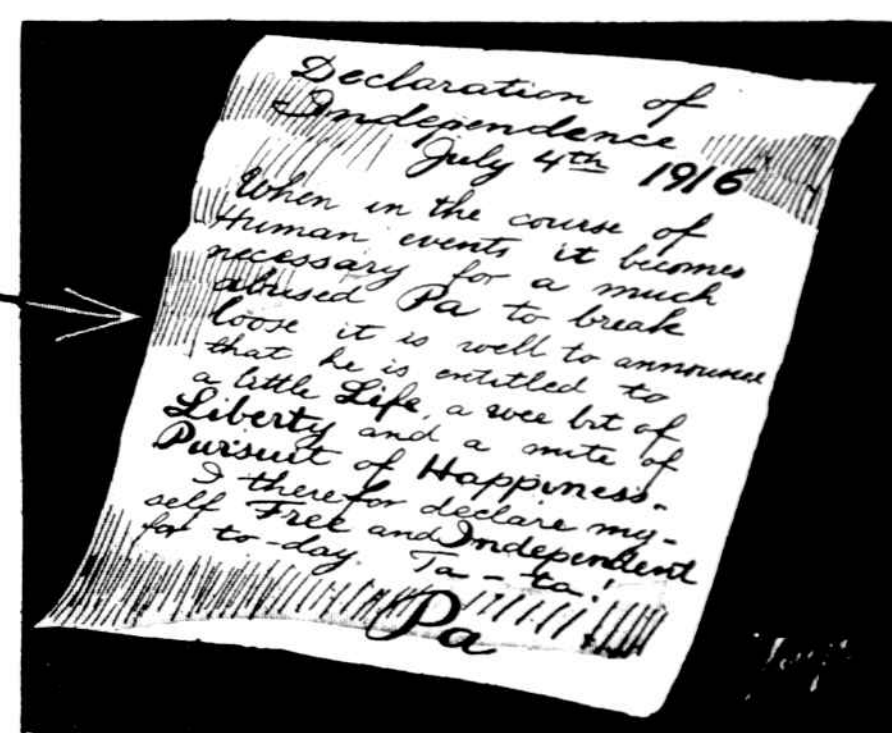 Declaration of
Independence
July 4th 1916
When in the course of
Human events it becomes
necessary for a much
abused Pa to break
loose it is well to announce
that he is entitled to
a little Life, a wee bit of
Liberty and a mite of
Pursuit of Happiness.
I therefor declare my-
self Free and Independent
for to-day. Ta-ta!
Pa